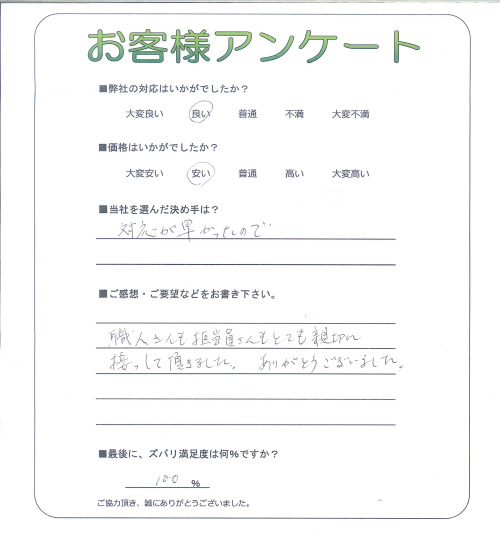 お客様アンケート
■弊社の対応はいかがでしたか？
大変良い 良い 普通 不満 大変不満
■価格はいかがでしたか？
大変安い 安い 普通 高い 大変高い
■当社を選んだ決め手は？
対応が早かったので
■ご感想・ご要望などをお書き下さい。
職人さんも担当員さんもとても親切に
接っして頂きました。ありがとうございました。
■最後に、ズバリ満足度は何％ですか？
100 %
ご協力頂き、誠にありがとうございました。